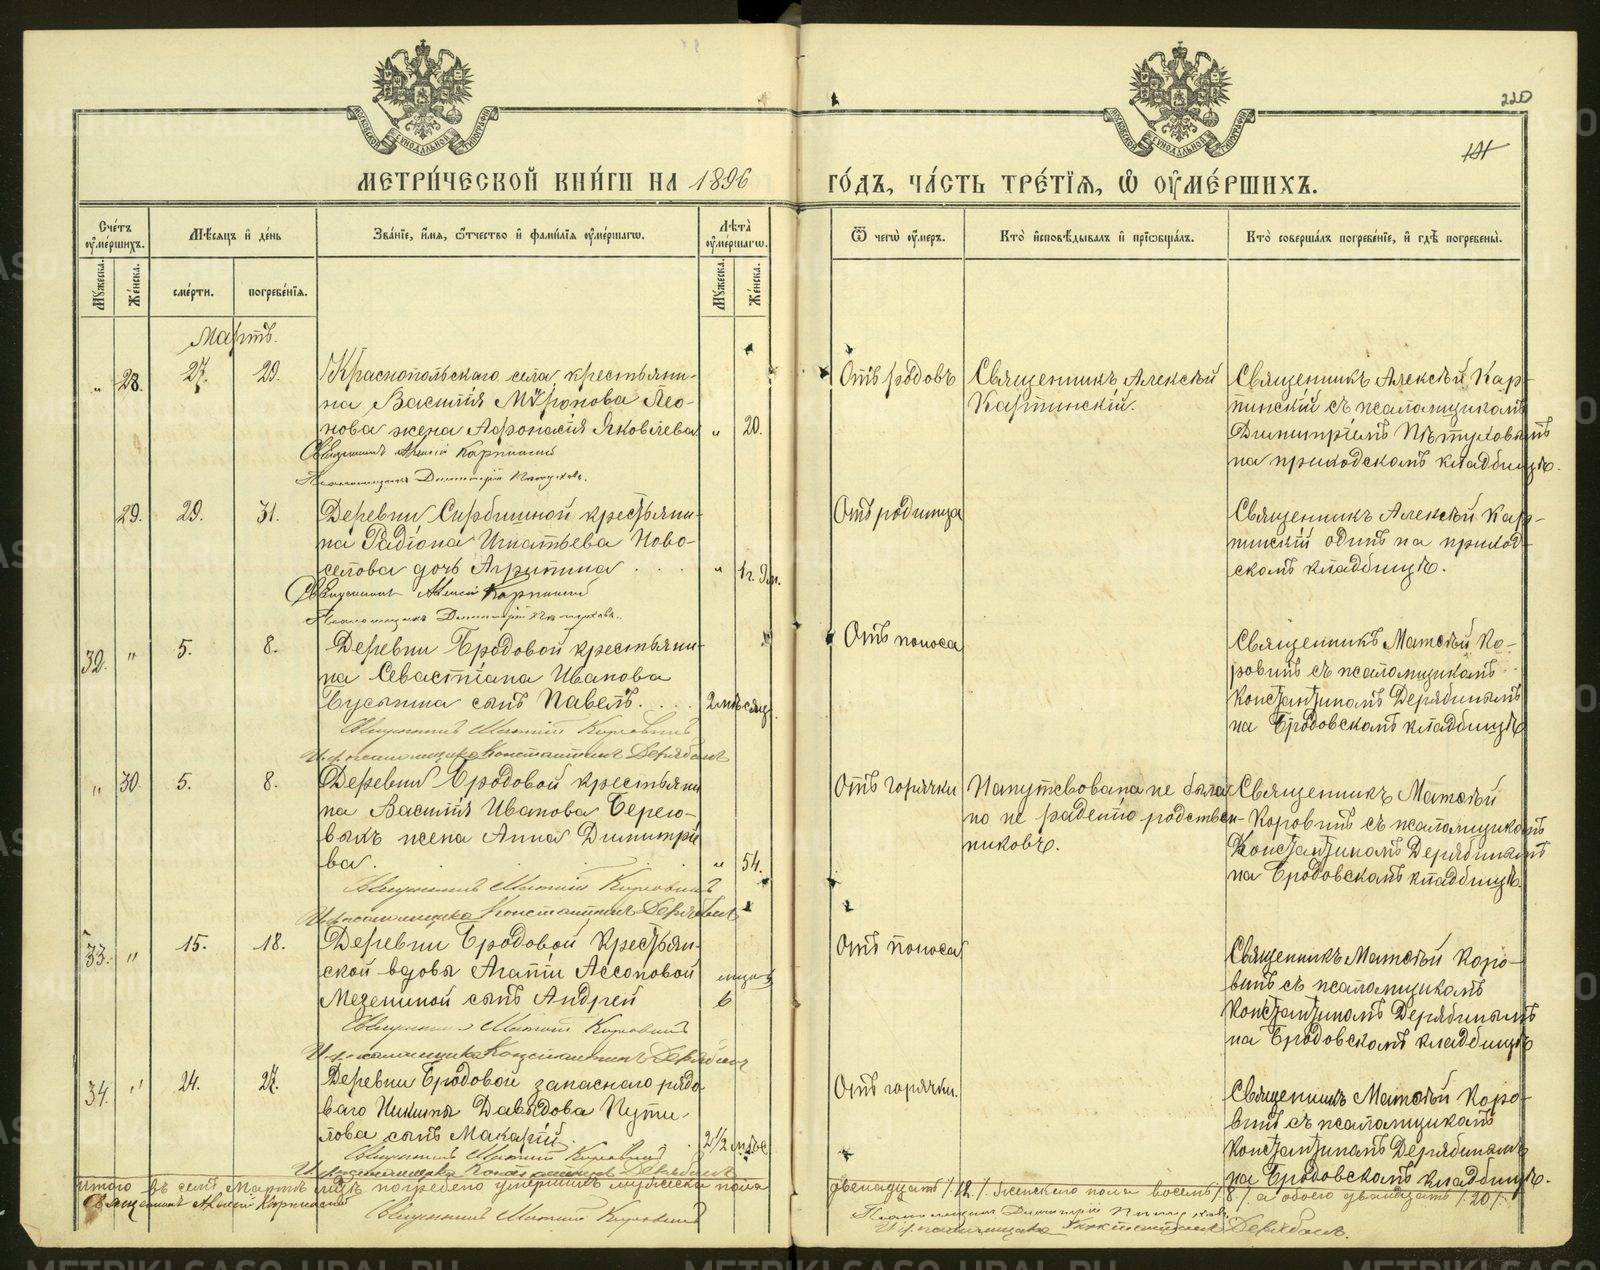 220
МОСКОВСКОЙ СУНОДАЛЬНОЙ ТИПОГРАФІИ
МОСКОВСКОЙ СУНОДАЛЬНОЙ ТИПОГРАФІИ
МЕТРИЧЕСКОЙ КНИГИ НА 1896 ГОДЪ, ЧАСТЬ ТРЕТІЯ, Ѡ ОУМЕРШИХЪ.
Счетъ оумершихъ.
Мужеска.
Женска.
Мѣсяцъ и день
смерти.
погребенія.
Званіе, имя, отчество и фамилія оумершаго.
Лѣта оумершаго.
Мужеска.
Женска.
Ѿ чего оумеръ.
Кто исповѣдывалъ и пріобщалъ.
Кто совершалъ погребеніе, и гдѣ погребены.
Мартъ.
„ 28. 27. 29.
Краснопольскаго села, крестьяни-
на Василія Мѵронова Лео-
нова жена Афонасія Яковлева „ 20.
Священникъ Алексій Карпинскій
Псаломщикъ Димитрій Пѣтуховъ.
Отъ родовъ
Священникъ Алексѣй
Карпинскій.
Священникъ Алексѣй Кар-
пинскій съ псаломщикомъ
Димитріемъ Пѣтуховымъ
на приходскомъ кладбищѣ.
29. 29. 31.
Деревни Сербишной крестьяни-
на Радіона Игнатьева Ново-
селова дочь Агрипина „ 1 г. 9 м.
Священникъ Алексій Карпинскій
Псаломщикъ Димитрій Пѣтуховъ.
Отъ родимца
Священникъ Алексѣй Кар-
пинскій одинъ на приход-
скомъ кладбищѣ.
32. „ 5. 8.
Деревни Бродовой крестьяни-
на Севастіана Иванова
сынъ Павелъ. 2 мѣсяц.
Священникъ Матѳій Коровинъ
И. д. псаломщика Константинъ Дерябинъ
Отъ поноса
Священникъ Матѳѣй Ко-
ровинъ съ псаломщикомъ
Константиномъ Дерябинымъ
на Бродовскомъ кладбищѣ
„ 30. 5. 8.
Деревни Бродовой крестьяни
на Василія Иванова Берего-
выхъ жена Анна Димитріе
ва. „ 54.
Священникъ Матѳій Коровинъ
И. д. псаломщика Константинъ Дерябинъ
Отъ горячки
Напутствована не была
по не радѣнію родствен-
никовъ.
Священникъ Матѳѣй
Коровинъ съ псаломщикомъ
Константиномъ Дерябинымъ
на Бродовскомъ кладбищѣ
33. „ 15. 18.
Деревни Бродовой Крестьян-
ской вдовы Агапіи Ассоновой
Мезениной сынъ Андрей 6
Священникъ Матѳій Коровинъ
И. д. псаломщика Константинъ Дерябинъ
Отъ поноса
Священникъ Матѳѣй Коро-
винъ съ псаломщикомъ
Константиномъ Дерябинымъ
на Бродовскомъ кладбищѣ
34. „ 24. 27.
Деревни Бродовой запаснаго рядо
ваго Никиты Давыдова Пути-
лова сынъ Макарій. 2 1/2 мѣсс
Священникъ Матѳій Коровинъ
И. д. псаломщика Константинъ Дерябинъ
Отъ горячки.
Священникъ Матѳѣй Коро-
винъ съ псаломщикомъ
Константиномъ Дерябинымъ
на Бродовскомъ кладбищѣ.
Итого въ семъ Мартѣ мцѣ погребено умершихъ мужеска пола двенадцать /12./ женскаго пола восемь /8./ а обоего двадцать /20/.
Священникъ Алексій Карпинскій
Священникъ Матѳій Коровинъ
Псаломщикъ Димитрій Пѣтуховъ.
И. д. псаломщика Константинъ Дерябинъ.